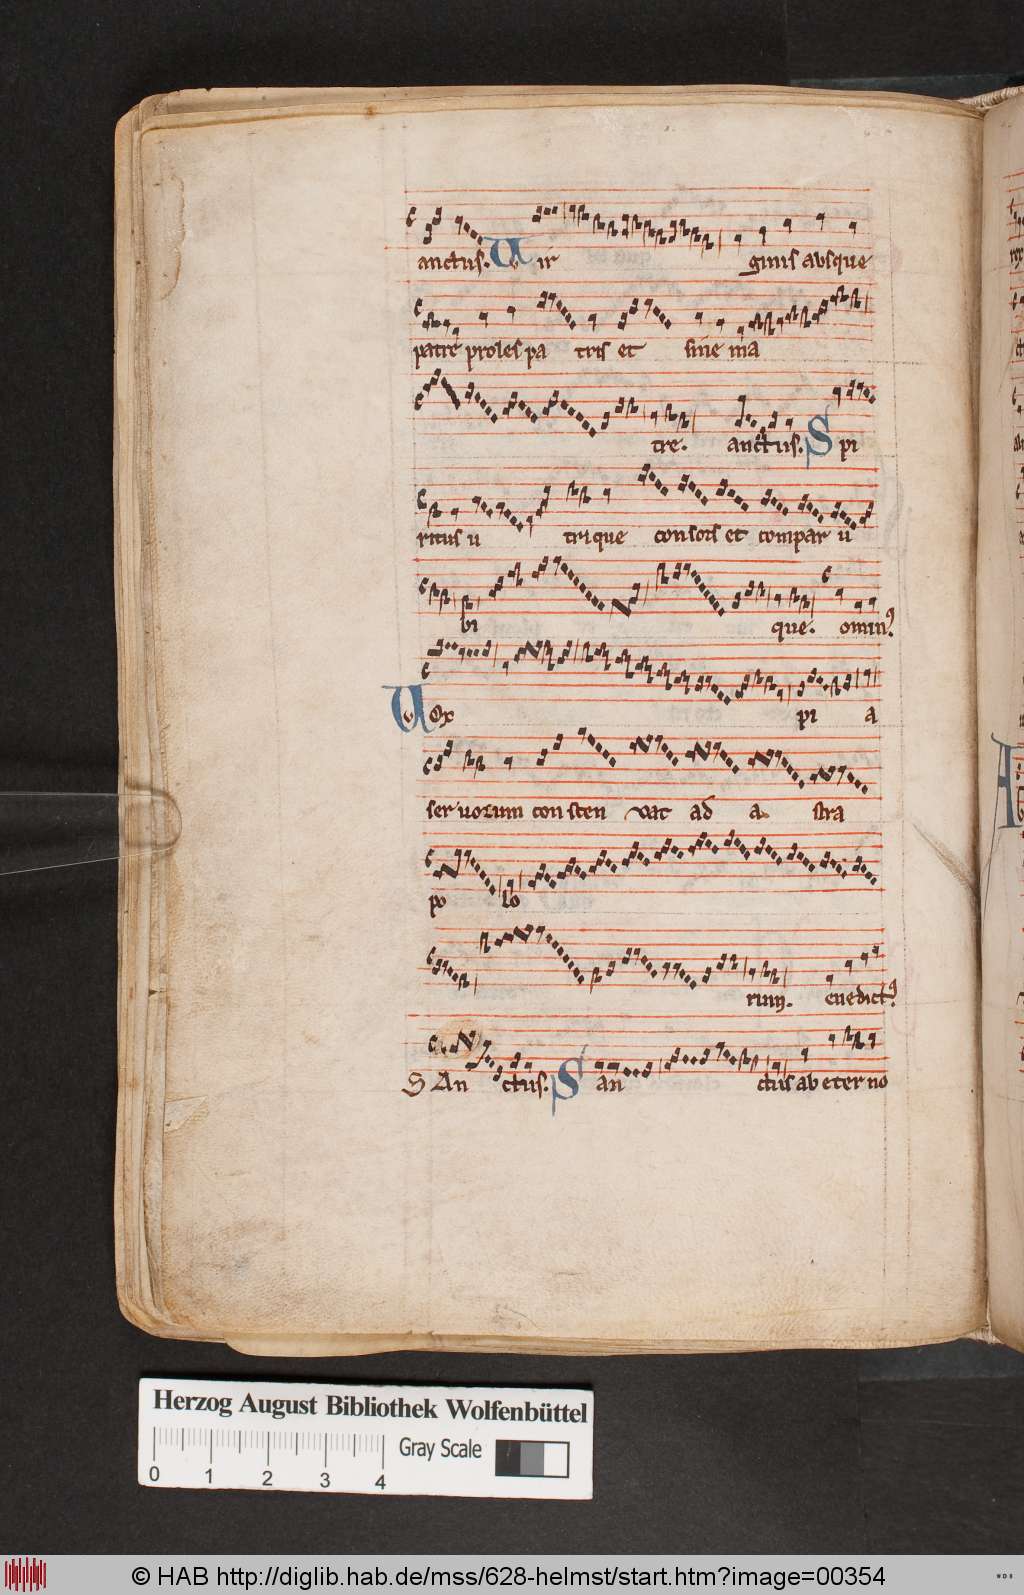 anctus. Vir ginis absque
patre proles pa tris et sine ma
tre. anctus. Spi
ritus u trique consors et compar u
bi que. omin9.
Vox pi a
ser uorum con scen dat ad a stra
po lo
rum. enedict9.
SAn ctus. San ctus ab eter no
Herzog August Bibliothek Wolfenbüttel
Gray Scale
0 1 2 3 4
© HAB http://diglib.hab.de/mss/628-helmst/start.htm?image=00354